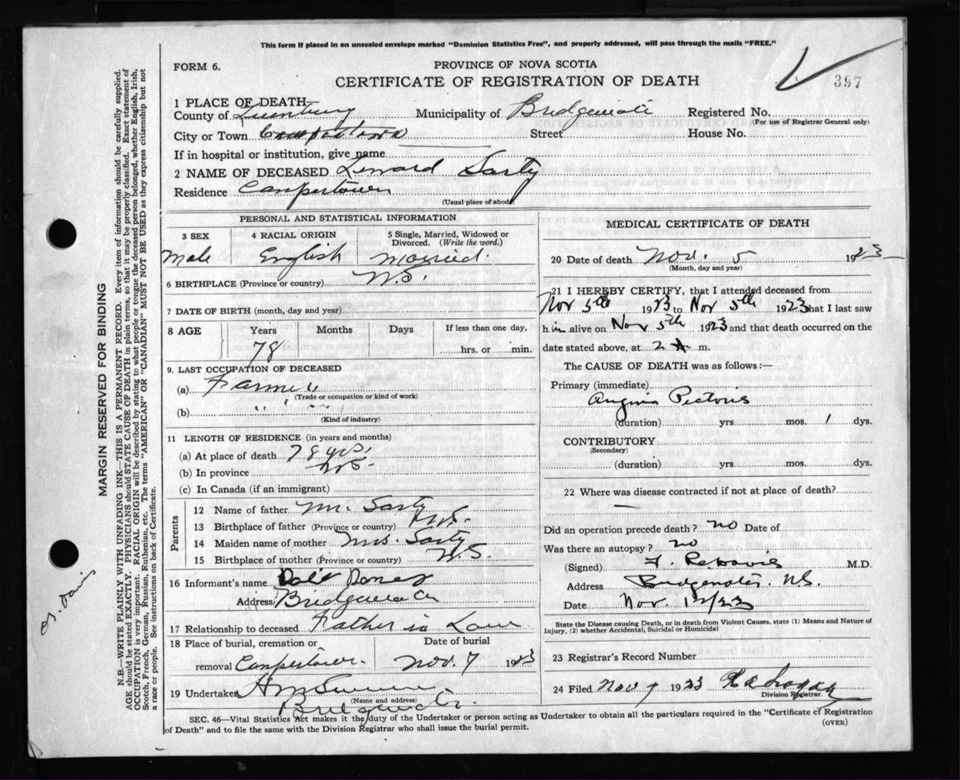 This form if placed in an unsealed envelope marked "Dominion Statistics Free", and properly addressed, will pass through the mails "FREE."
FORM 6.
PROVINCE OF NOVA SCOTIA
CERTIFICATE OF REGISTRATION OF DEATH
397
1 PLACE OF DEATH
County of Lunenburg Municipality of Bridgewater Registered No.
(For use of Registrar General only)
City or Town Street House No.
If in hospital or institution, give name
2 NAME OF DECEASED Lennard Sarty
Residence Conpertown
(Usual place of abode)
PERSONAL AND STATISTICAL INFORMATION
3 SEX
Male
4 RACIAL ORIGIN
English
5 Single, Married, Widowed or Divorced. (Write the word.)
Married.
6 BIRTHPLACE (Province or country) N.S.
7 DATE OF BIRTH (month, day and year)
8 AGE Years Months Days If less than one day,
78 hrs. or min.
9. LAST OCCUPATION OF DECEASED
(a) Farmer
(Trade or occupation or kind of work)
(b) " "
(Kind of industry)
11 LENGTH OF RESIDENCE (in years and months)
(a) At place of death 78 yrs.
(b) In province N.S.
(c) In Canada (if an immigrant)
Parents
12 Name of father Mr. Sarty
13 Birthplace of father (Province or country) N.S.
14 Maiden name of mother Mrs. Sarty
15 Birthplace of mother (Province or country) N.S.
16 Informant's name
Address Bridgewater
17 Relationship to deceased Father in Law
18 Place of burial, cremation or removal Conpertown
Date of burial
Nov. 7 1923
19 Undertaker
(Name and address)
Bridgewater
MEDICAL CERTIFICATE OF DEATH
20 Date of death Nov. 5 1923
(Month, day and year)
21 I HEREBY CERTIFY, that I attended deceased from
Nov 5th 1923 to Nov 5th 1923 that I last saw
him alive on Nov 5th 1923 and that death occurred on
date stated above, at 2 A m.
The CAUSE OF DEATH was as follows:—
Primary (immediate)
Angina Pectoris
(duration) yrs. mos. 1 dys.
CONTRIBUTORY
(Secondary)
(duration) yrs. mos. dys.
22 Where was disease contracted if not at place of death?
—
Did an operation precede death? no Date of
Was there an autopsy? no
(Signed) M.D.
Address Bridgewater, N.S.
Date Nov. 12/23
State the Disease causing Death, or in death from Violent Causes, state (1) Means and Nature of Injury, (2) whether Accidental, Suicidal or Homicidal
23 Registrar's Record Number
24 Filed Nov 7 1923
Division Registrar.
SEC. 46—Vital Statistics Act makes it the duty of the Undertaker or person acting as Undertaker to obtain all the particulars required in the "Certificate of Registration
of Death" and to file the same with the Division Registrar who shall issue the burial permit.
(OVER)
MARGIN RESERVED FOR BINDING
N.B.—WRITE PLAINLY WITH UNFADING INK—THIS IS A PERMANENT RECORD. Every item of information should be carefully supplied.
AGE should be stated EXACTLY. PHYSICIANS should STATE CAUSE OF DEATH in plain terms, so that it may be properly classified. Exact statement of
OCCUPATION is very important. RACIAL ORIGIN will be described by stating to what people or tongue the deceased person belonged, whether English, Irish,
Scotch, French, German, Russian, Ruthenian, etc. The terms "AMERICAN" or "CANADIAN" MUST NOT BE USED as they express citizenship but not
a race or people. See instructions on back of Certificate.